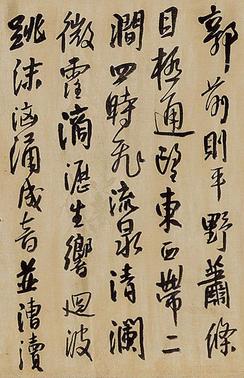 郭前則平野蕭條
目極通望東西帶二
澗四時飛流泉清瀾
微霔滴瀝生響迴波
跳沫汹涌成音並漕瀆